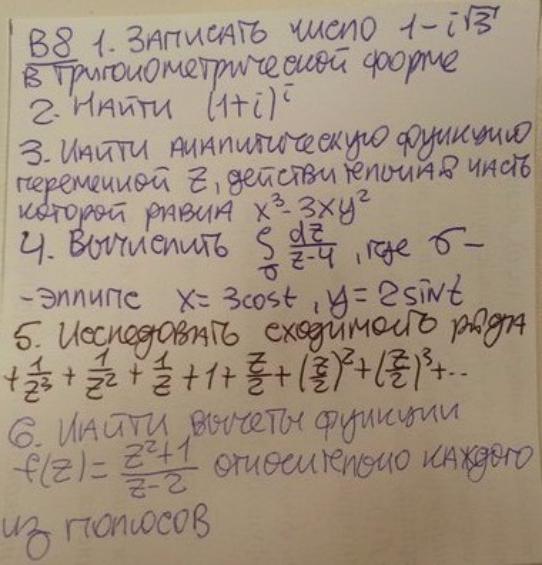 В8 1. Записать число 1-i√3
в тригонометрической форме
2. Найти (1+i)^i
3. Найти аналитическую функцию
переменной z, действительная часть
которой равна x³-3xy²
4. Вычислить ∫_σ dz/(z-4), где σ -
- эллипс x=3cost, y=2sint
5. Исследовать сходимость ряда
+ 1/z³ + 1/z² + 1/z + 1 + z/2 + (z/2)² + (z/2)³ + ..
6. Найти вычеты функции
f(z) = (z²+1)/(z-2) относительно каждого
из полюсов